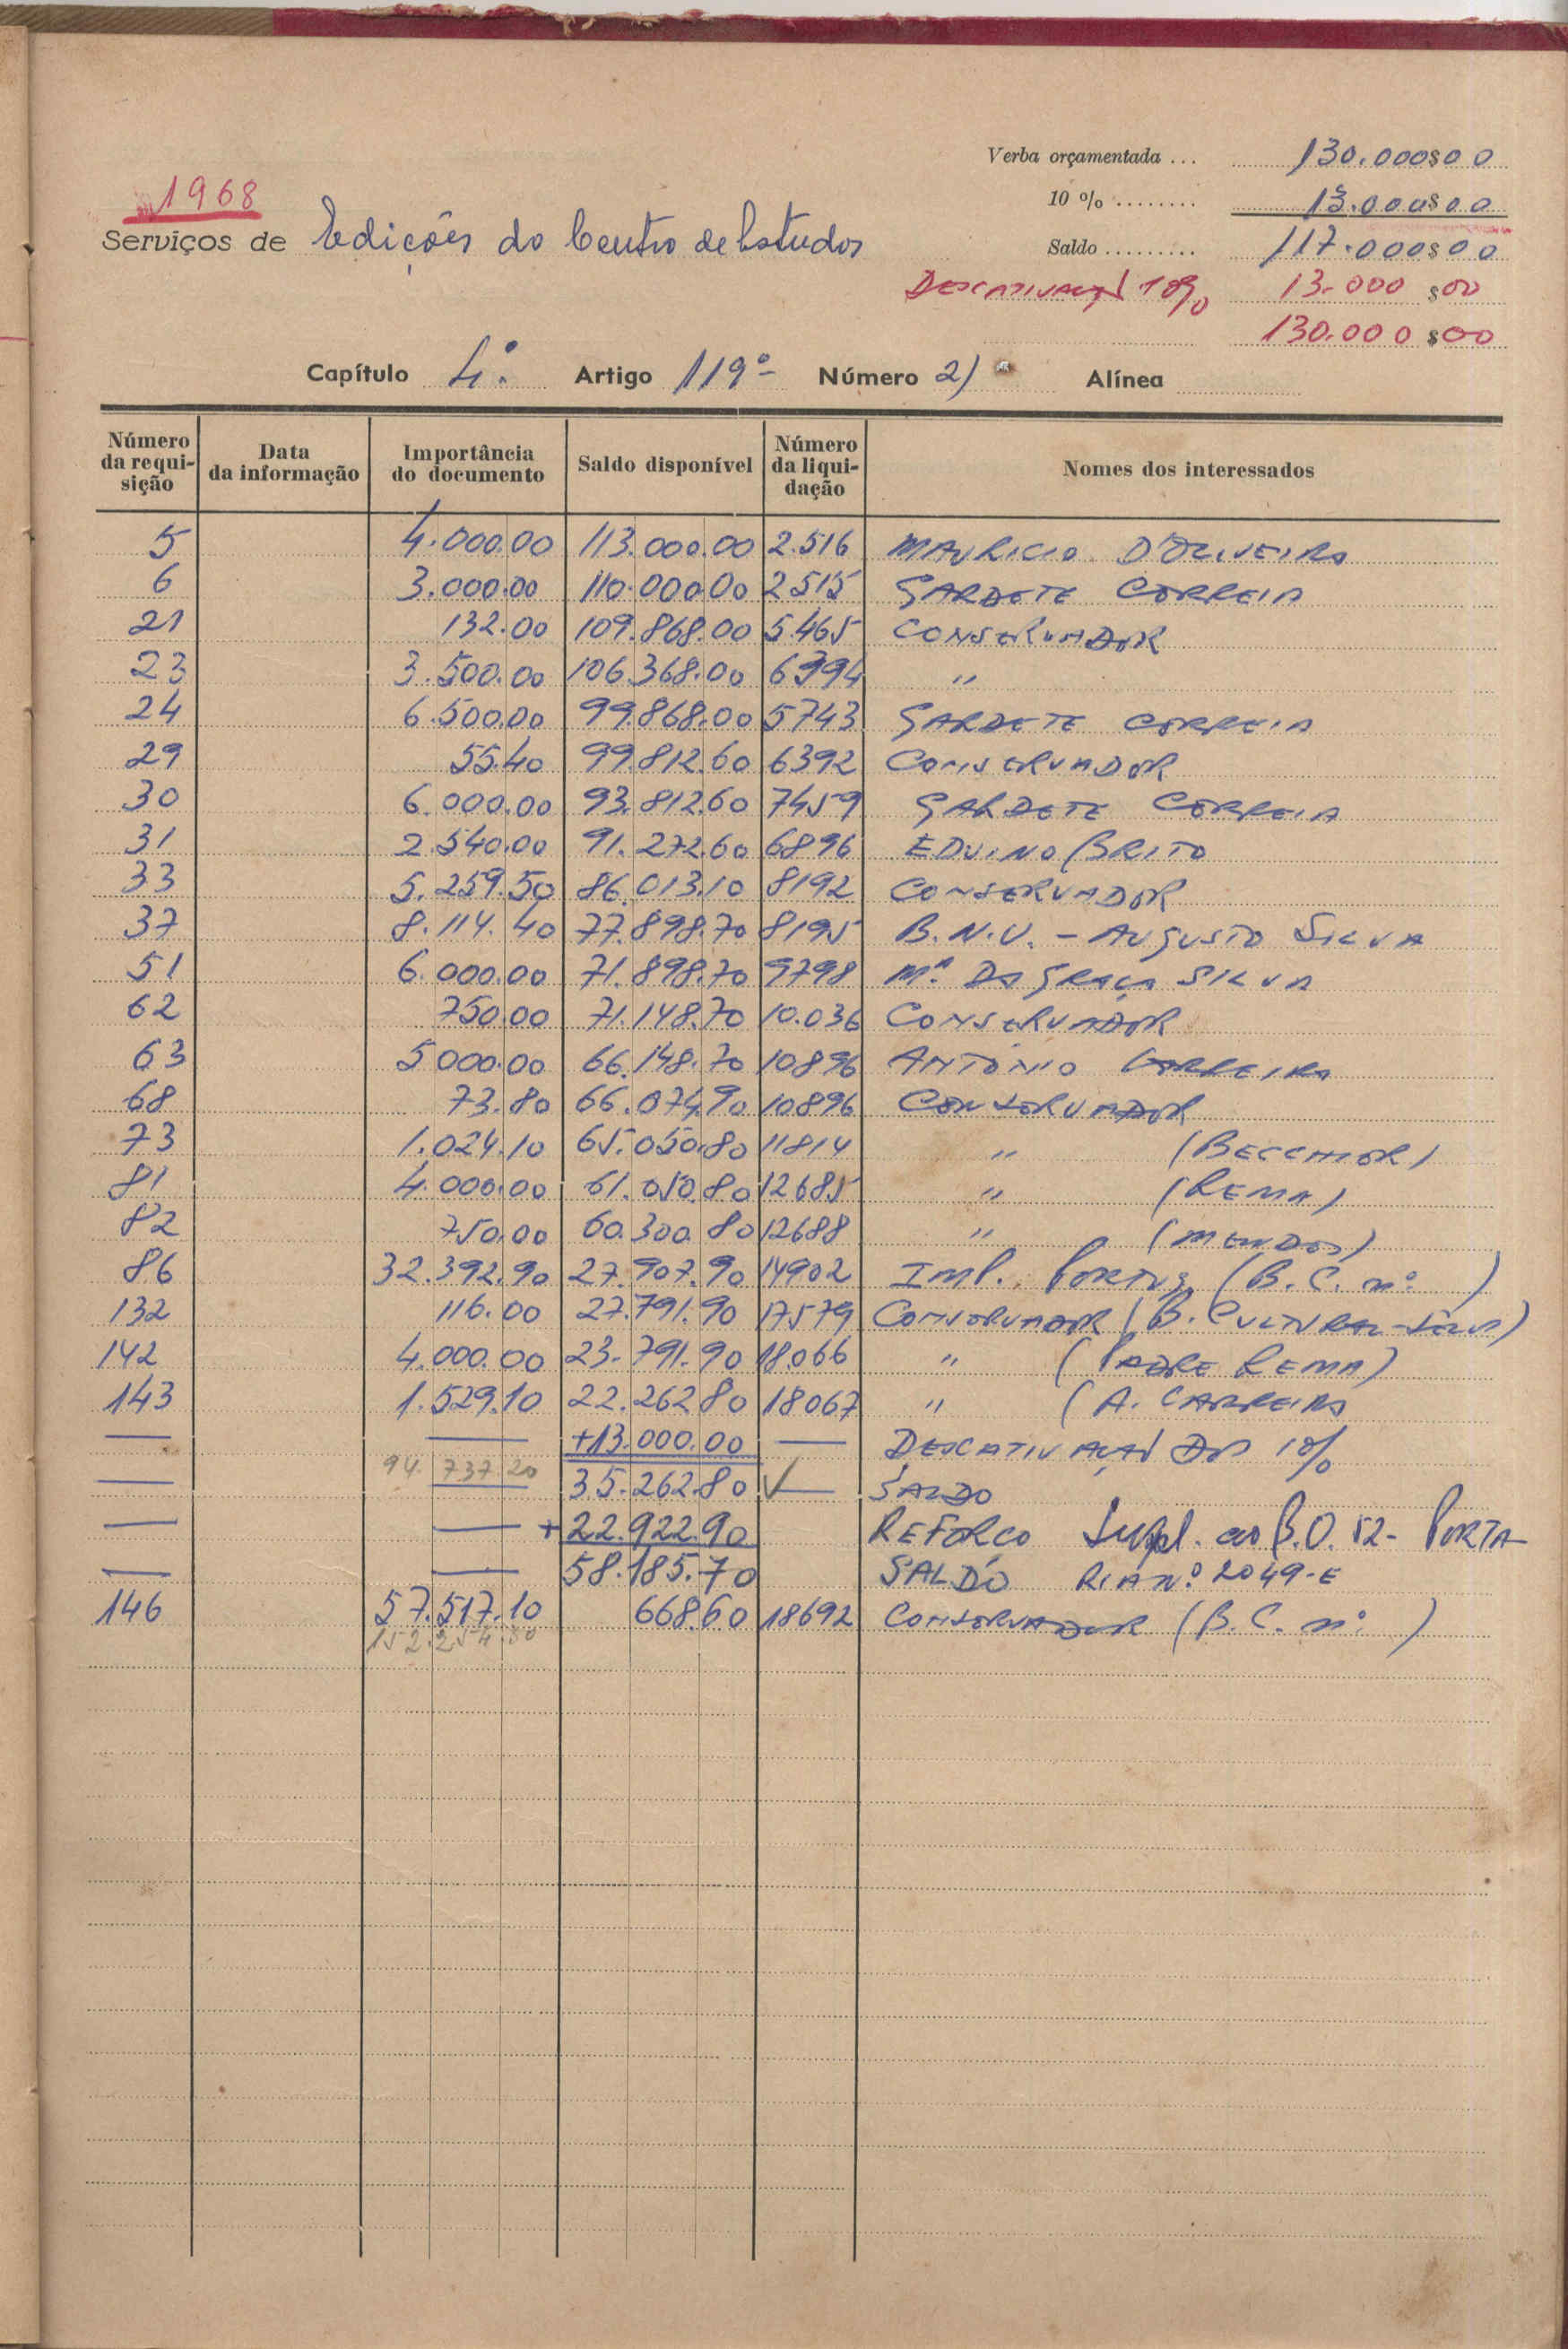 Verba orçamentada ... 130.000$00
1968
10 % ........ 13.000$00
Serviços de Edições do Centro de Estudos
Saldo ......... 117.000$00
DESCATIVAÇÃO 10% 13.000 $00
130.000 $00
Capítulo 4.º Artigo 119º Número 2) Alínea
Número da requisição Data da informação Importância do documento Saldo disponível Número da liquidação Nomes dos interessados
5 4.000.00 113.000.00 2.516 MAURICIO D'OLIVEIRA
6 3.000.00 110.000.00 2515 GARDETE CORREIA
21 132.00 109.868.00 5.465 CONSERVADOR
23 3.500.00 106.368.00 6394 "
24 6.500.00 99.868.00 5743 GARDETE CORREIA
29 55.40 99.812.60 6392 CONSERVADOR
30 6.000.00 93.812.60 7459 GARDETE CORREIA
31 2.540.00 91.272.60 6896 EDUINO BRITO
33 5.259.50 86.013.10 8192 CONSERVADOR
37 8.114.40 77.898.70 8195 B.N.U. - AUGUSTO SILVA
51 6.000.00 71.898.70 9798 Mª DA GRAÇA SILVA
62 750.00 71.148.70 10.036 CONSERVADOR
63 5000.00 66.148.70 10896 ANTÓNIO CARREIRA
68 73.80 66.074.90 10896 CONSERVADOR
73 1.024.10 65.050.80 11814 " (BELCHIOR)
81 4.000.00 61.050.80 12685 " (REMA)
82 750.00 60.300.80 12688 " (MENDES)
86 32.392.90 27.907.90 14902 IMP. PORTUG (B.C. nº )
132 116.00 27.791.90 17579 CONSERVADOR (B. CULTURAL
142 4.000.00 23.791.90 18.066 " (PADRE REMA)
143 1.529.10 22.262.80 18067 " (A. CARREIRA
— — +13.000.00 — DESCATIVAÇÃO DOS 10%
— 94.737.20 35.262.80 ✓— SALDO
— — +22.922.90 REFORÇO Supl. ao B.O. 52 - PORTA-
— — 58.185.70 SALDO RIA N.º 2049-E
146 57.517.10 668.60 18692 CONSERVADOR (B.C. nº )
152.254.30